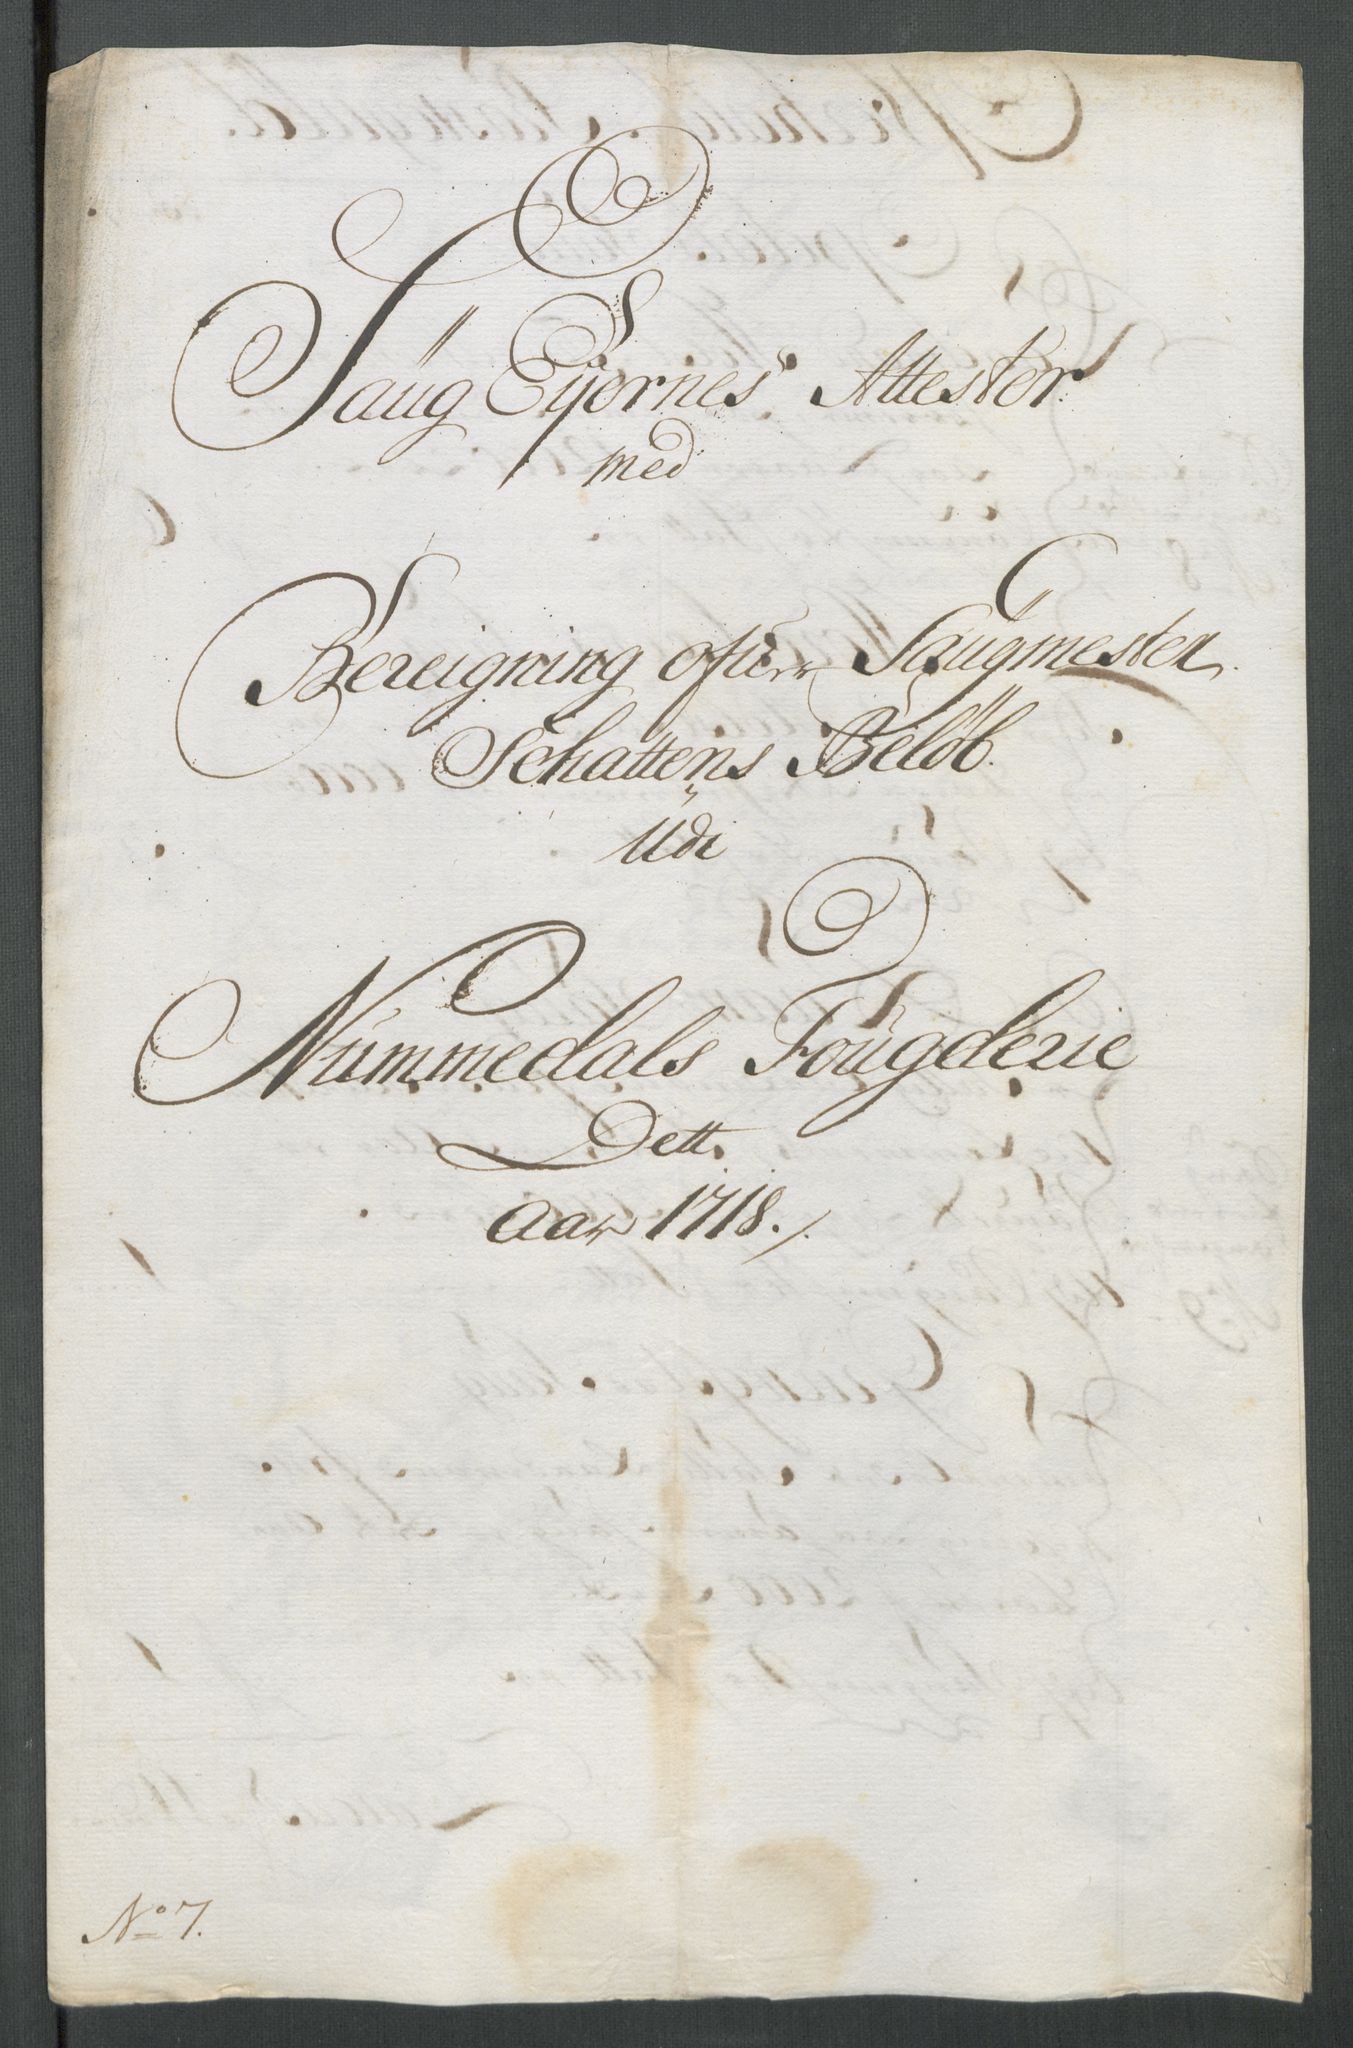 Saug Eÿernes Attester
med
Bereigning ofver Saugmester
Schattens Beløb
Udi
Nummedals Fougderie
Dett
Aar 1718.
No 7.